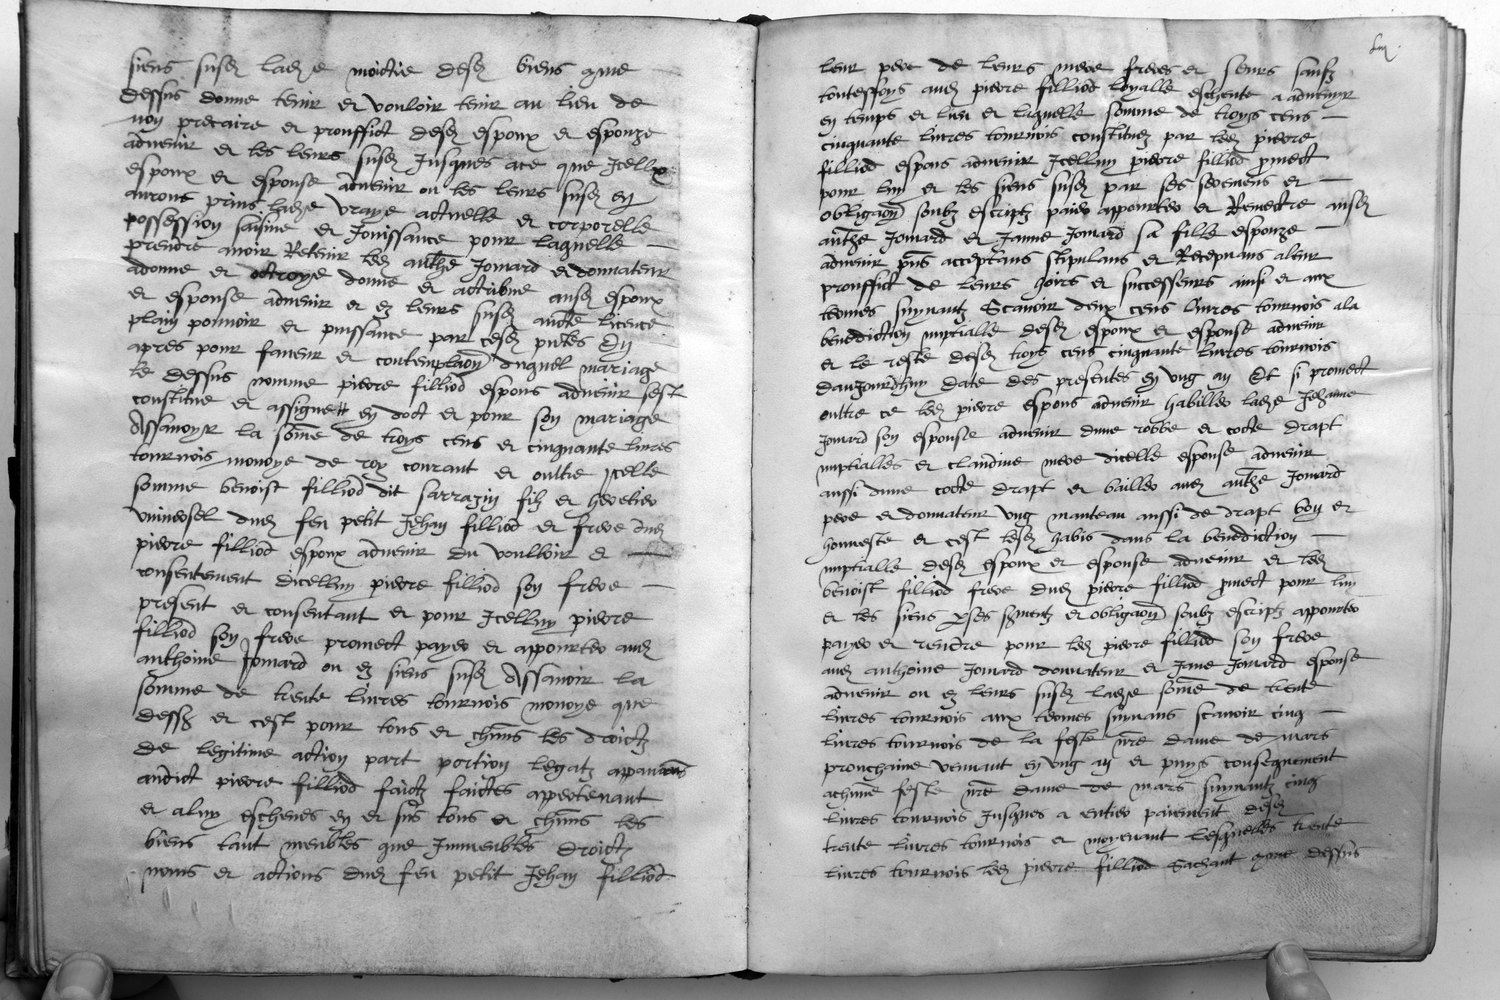 siens susd ladite moictie desd biens que
dessus donne tenir et vouloir tenir au lieu de
non precaire et prouffict desd espoux et espouze
advenir et les leurs susd Jusques ace que Icellx
espoux et espouse advenir ou les leurs susd en
auront prins ladite vraye actuelle et corporelle
possession saisine et Jouissance pour laquelle
prendre avoir Retenir led anthe Jomard et donnateur
adonne et octroye donne et actribue ausd espoux
et espouse advenir et es leurs susd aucte licence
plain pouvoir et puissance par cesd putes En
apres pour faveur et contemplaon duquel mariage
le dessus nomme pierre filliod espous advenir sest
constitue et assigne en doct et pour son mariage
Assavoyr la some de troys cens et cinquante livres
tournois monoye de roy courant et oultre Icelle
somme benoist filliod dit sarrazin filz et heretier
universel dud feu petit Jehan filliod et frere dud
pierre filliod espoux advenir du voulloir e
consentement dicelluy pierre filliod son frere
present et consentant et pour Icelluy pierre
filliod son frere promect payer et appourter aud
anthoine Jomard ou es siens susd Assavoir la
somme de trente livres tournois monoye que
dessus et cest pour tous et chuns les droictz
de legitime action part portion legatz apparans
audict pierre filliod faictz faictes appertenant
et a luy escheues en et sus tous et chuns les
biens tant meubles que Immeubles droictz
noms et actions dud feu petit Jehan filliod
leur pere de leurs mere freres et seurs saufz
toutessoys aud pierre filliod loyalle escheute a advenyr
en temps et lieu et laquelle somme de troys cens
cinquante livres tournois constituez par led pierre
filliod espous advenir Icelluy pierre filliod pmect
pour luy et les siens susd par ses seremens et
obligaon soubz escriptz paier appourter et Remectre ausd
anthe Jomard et Janne Jomard sa fille espouze
advenir pns acceptans stipulans et Recepvans a leur
prouffict de leurs hoirs et successeurs ainsi et aux
termes suyvantz Scavoir deux cens livres tournois a la
benediction nuptialle desd espoux et espouse advenir
et le reste desd troys cens cinquante livres tournois
daujourdhuy date des presentes en ung an Et si promect
oultre ce led pierre espous advenir habiller ladte Jehanne
Jomard son espouse advenir dune robbe et cotte drapt
nuptialles et claudine mere dicelle espouse advenir
aussi dune cotte drapt et bailler aud anthe Jomard
pere et donnateur ung manteau aussi de drapt bon et
honneste et cest lesd habis dans la benediction
nuptialle desd espoux et espouse advenir et led
benoist filliod frere dud pierre filliod pmect pour luy
et les siens p ses sermentz et obligaon soubz escriptz appourter
payer et rendre pour led pierre filliod son frere
aud anthoine Jomard donnateur et Jane Jomard espouse
advenir ou es leurs susd ladte some de trente
livres tournois aux termes suyvans scavoir cinq
livres tournois de la feste nre dame de mars
prouchaine venant en ung an et puys consequement
achune feste nre dame de mars suyvantz cinq
livres tournois Jusques a entier paiement desd
trente livres tournois et moyenant lesquelles trente
livres tournois led pierre filliod Sachant que dessus